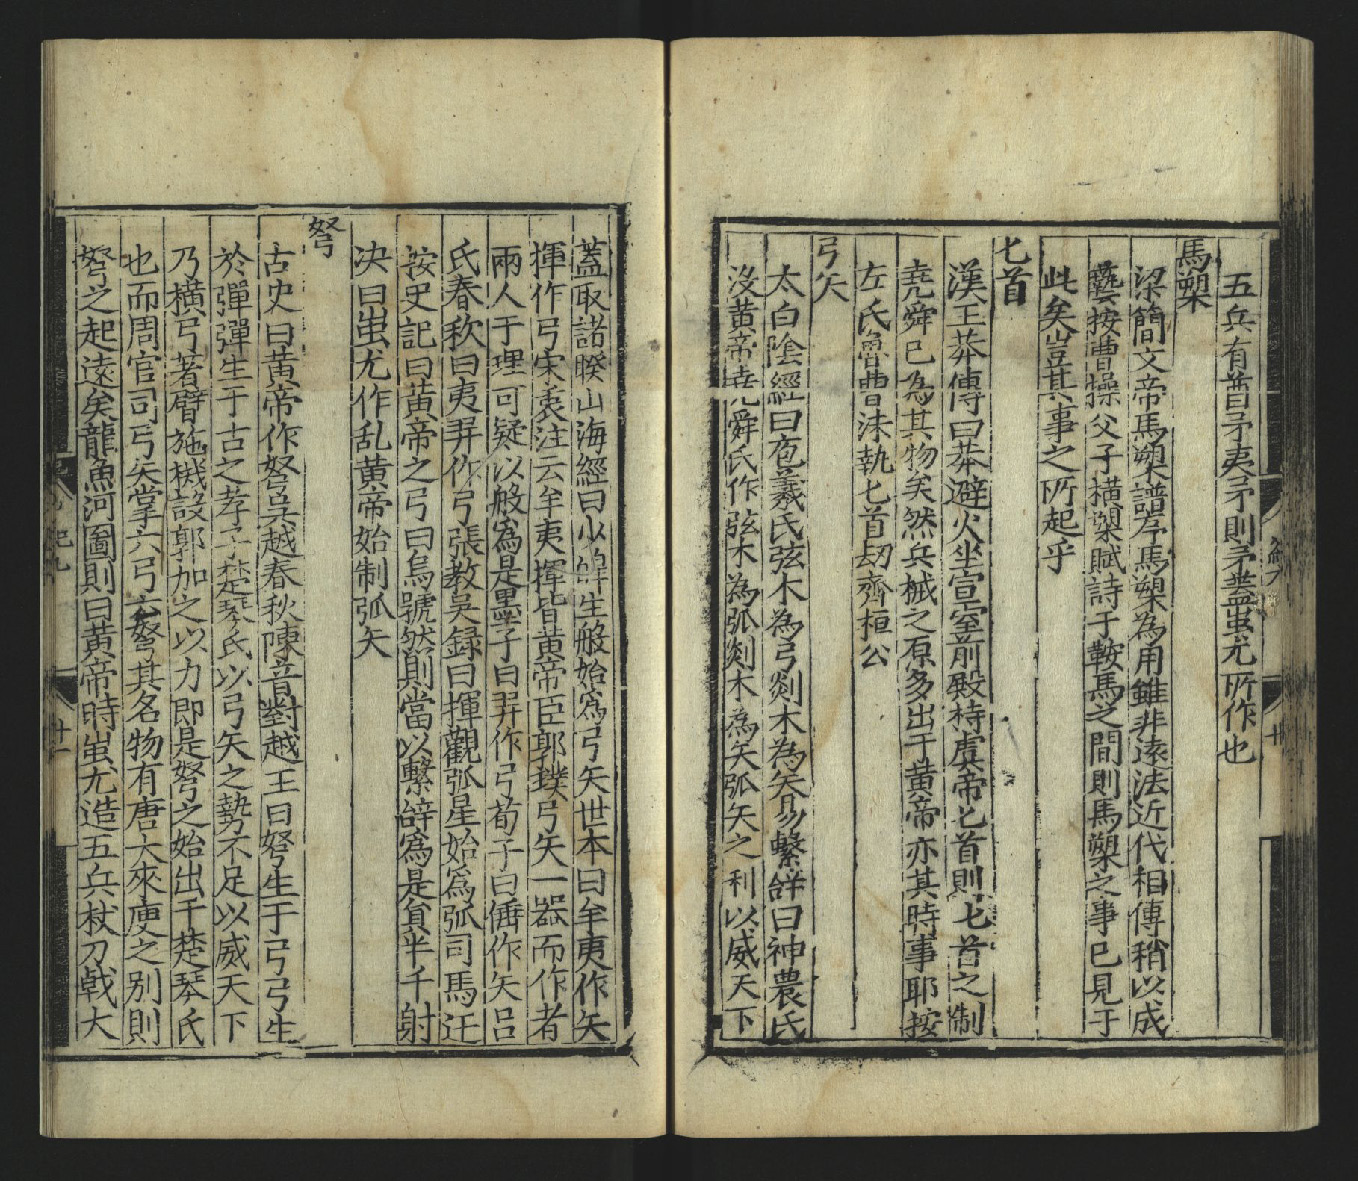 五兵有酋矛夷矛則矛蓋蚩尤所作也
馬槊
梁簡文帝馬槊譜序馬槊為用雖非遠法近代相傳稍以成
藝按曹操父子横槊賦詩于鞍馬之間則馬槊之事已見于
此矣豈其事之所起乎
匕首
漢王莽傳曰莽避火坐宣室前殿持虞帝匕首則匕首之制
堯舜已為其物矣然兵械之原多出于黄帝亦其時事耶按
左氏魯曹沬執匕首刼齊桓公
弓矢
太白陰經曰庖羲氏弦木為弓剡木為矢易繫辭曰神農氏
沒黄帝堯舜氏作弦木為弧剡木為矢弧矢之利以威天下
蓋取諸睽山海經曰少皡生般始爲弓矢世本曰牟夷作矢
揮作弓宋衷注云牟夷揮皆黄帝臣郭璞弓矢一器而作者
兩人于理可疑以般爲是墨子曰羿作弓荀子曰倕作矢吕
氏春秋曰夷羿作弓張教吴録曰揮觀弧星始爲弧司馬迁
按史記曰黄帝之弓曰烏號然則當以繫辭爲是負半千射
决曰蚩尤作乱黄帝始制弧矢
弩
古史曰黄帝作弩吴越春秋陳音對越王曰弩生于弓弓生
於彈彈生于古之孝子楚琴氏以弓矢之勢不足以威天下
乃横弓著臂施機設郭加之以力即是弩之始出于楚琴氏
也而周官司弓矢掌六弓六弩其名物有唐大來庾之别則
弩之起遠矣龍魚河圖則曰黄帝時蚩尤造五兵杖刀戟大